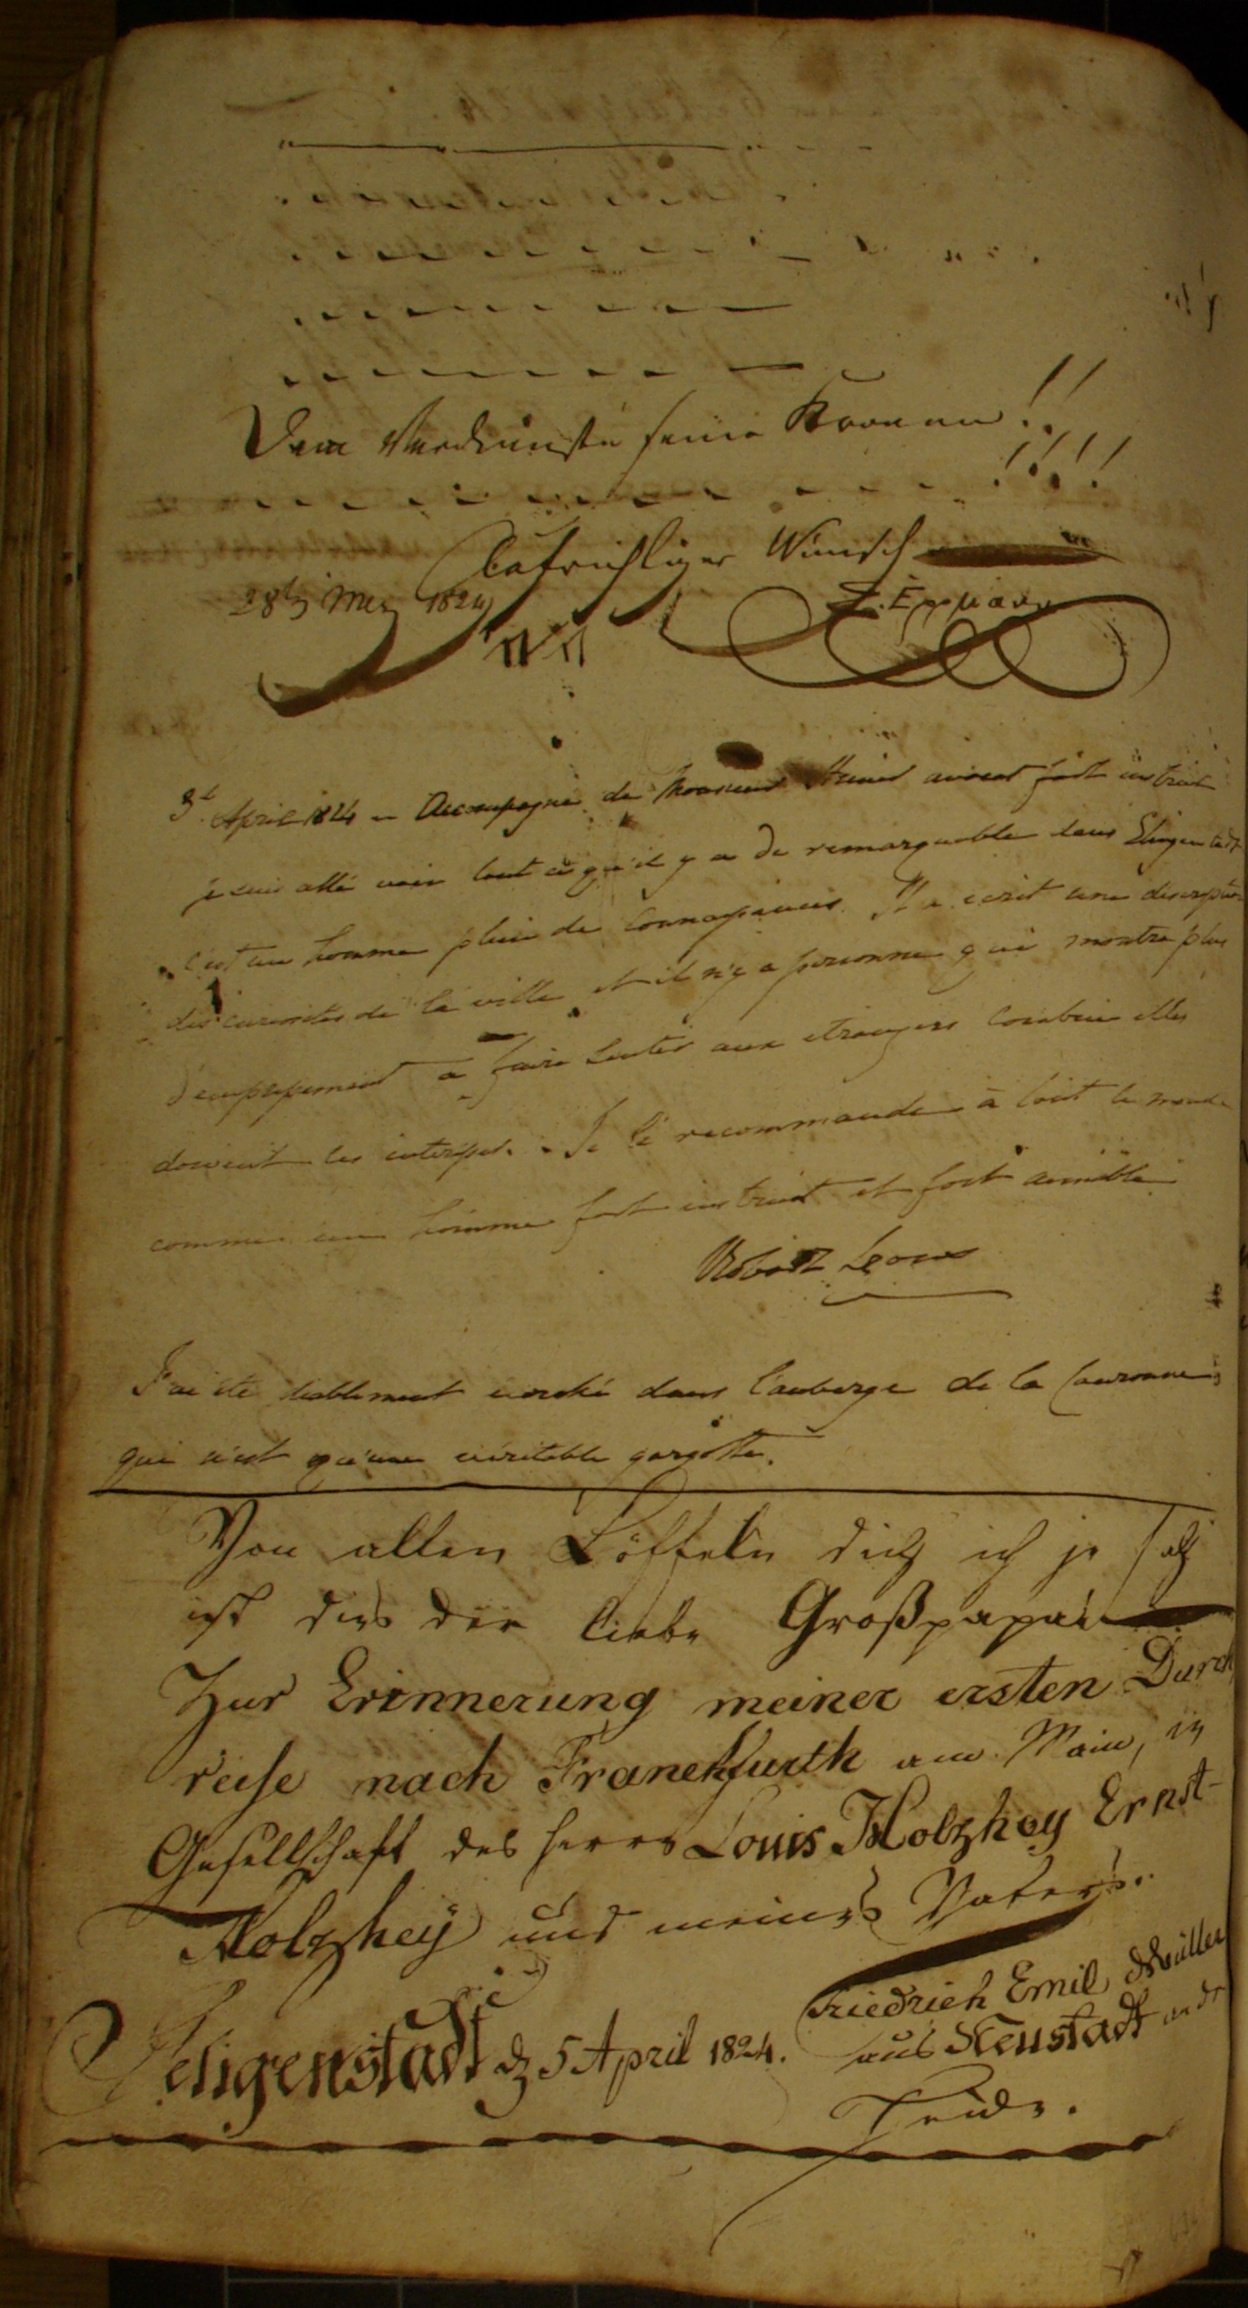 Dem Verdienste seine Kronen!!
!!!!
Aufrichtiger Wunsch
28t Merz 1824
3t. April 1824 – Accompagné de Monsieur avocat fort instruit
je suis allé voir tout ce qu'il y a de remarquable dans
c'est un homme plein de connaissances. Il a ecrit une discription
des curiosités de la ville et il n'y a personne qui montre plus
d'empressement a faire sentir aux etrangers combien elles
doivent les interesser. Je le recommande à tout le monde
comme un homme fort instruit et fort aimable
Robert
J'ai eté diablement ecorché dans l'auberge de la Couronne,
qui n'est qu'une veritable gargotte.
Von allen Löffeln dich ich je sah
ist dies der liebe Großpapa
Zur Erinnerung meiner ersten Durch
reise nach Franckfurth am Main, in
Gesellschaft des Herrn Louis Holzhey Ernst
Holzhey und meines Vaters.
Friedrich Emil Müller
Seligenstadt d 5 April 1824. aus Neustadt an dr
Heide.